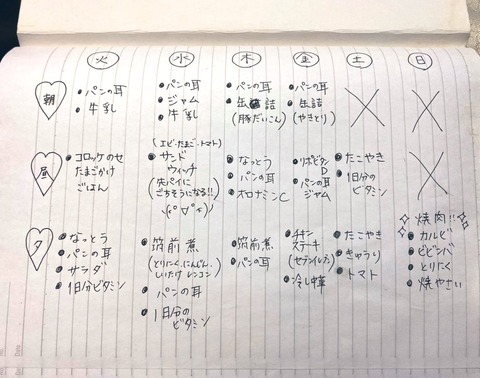 火 水 木 金 土 日
朝
・パンの耳
・牛乳
・パンの耳
・ジャム
・牛乳
・パンの耳
・缶詰
(豚だいこん)
・パンの耳
・缶詰
(やきとり)
昼
・コロッケのせ
たまごかけ
ごはん
(エビ・たまご・トマト)
・サンド
ウィッチ
(先パイに
ごちそうになる!!)
・なっとう
・パンの耳
・オロナミンC
・リポビタン
D
・パンの耳
ジャム
・たこやき
・1日分の
ビタミン
夕
・なっとう
・パンの耳
・サラダ
・1日分ビタミン
・筑前煮
(とりにく、にんじん、
しいたけ レンコン)
・パンの耳
・1日分の
ビタミン
・筑前煮
・パンの耳
・チキン
ステーキ
(セブンイレブン)
・冷し中華
・たこやき
・きゅうり
・トマト
焼肉!!
・カルビ
・ビビンバ
・とりにく
・焼やさい